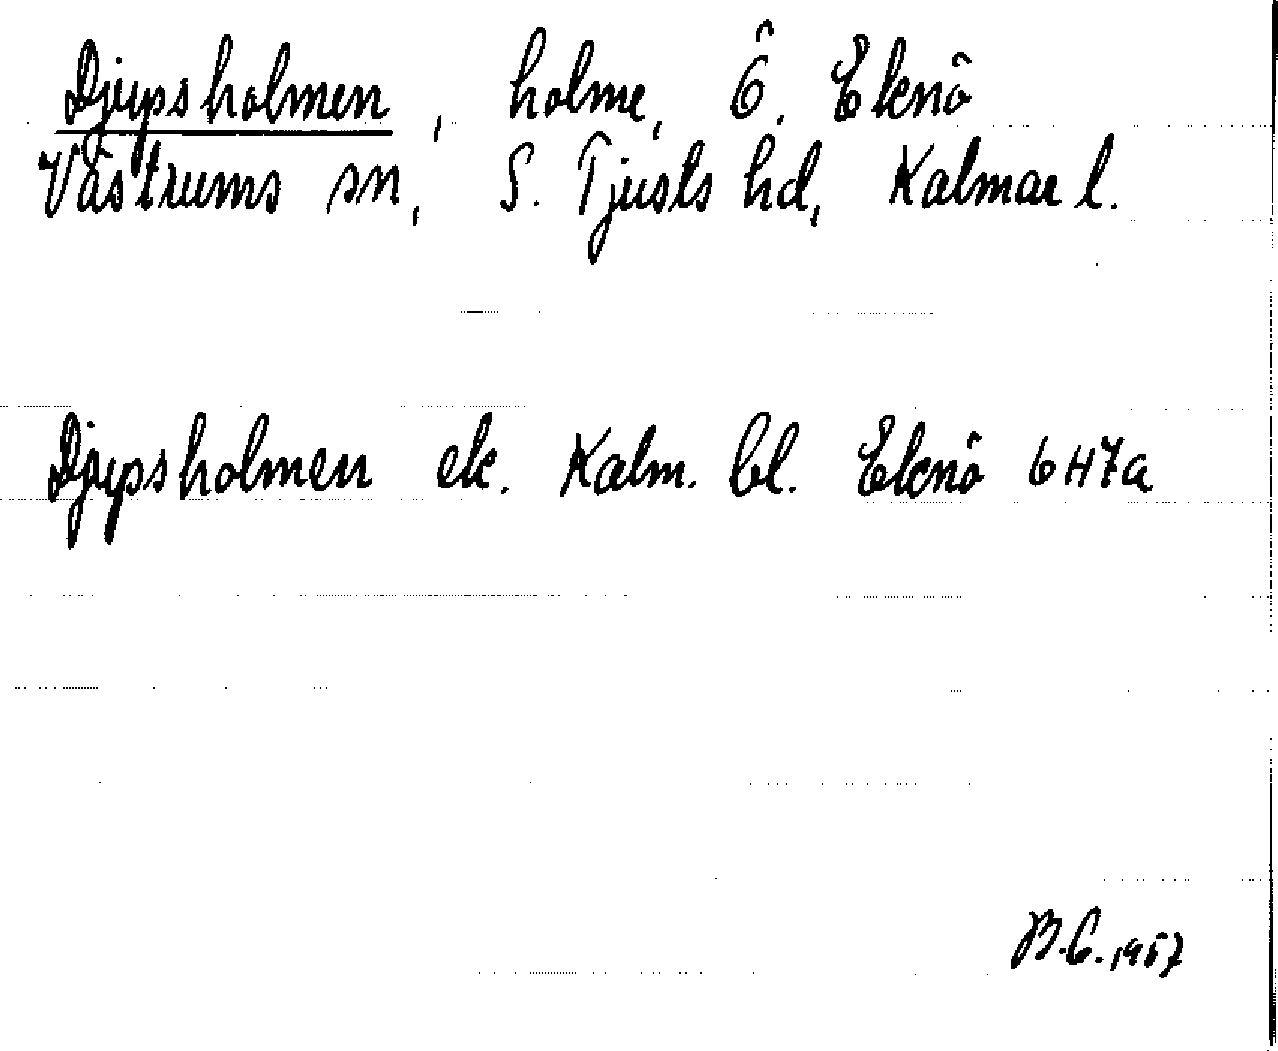 Djupsholmen, holme, Ö. Eknö
Västrums sn, S. Tjusts hd, Kalmar l.
Djupsholmen ek. Kalm. bl. Eknö 6H7a
B.C. 1957